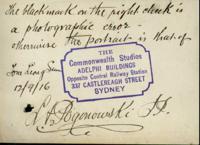 The black mark on the right cheek is
a photographic error
otherwise the portrait is that of
12/9/16
THE
Commonwealth Studios
ADELPHI BUILDINGS
Opposite Central Railway Station
337 CASTLEREAGH STREET
SYDNEY